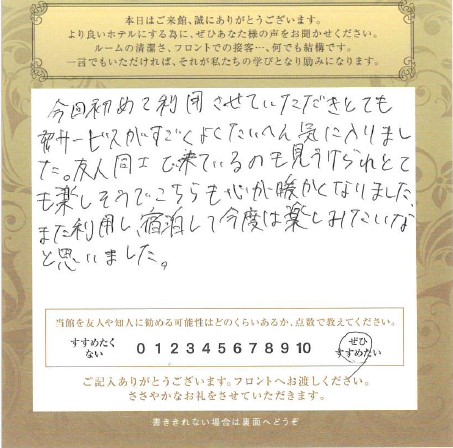 本日はご来館、誠にありがとうございます。
より良いホテルにする為に、ぜひあなた様の声をお聞かせください。
ルームの清潔さ、フロントでの接客…、何でも結構です。
一言でもいただければ、それが私たちの学びとなり励みになります。
今回初めて利用させていただきとても
サービスがすごくよくたいへん気に入りまし
た。友人同士で来ているのも見うけられとて
も楽しそうで、こちらも心が暖かくなりました。
また利用し、宿泊して今度は楽しみたいな
と思いました。
当館を友人や知人に勧める可能性はどのくらいあるか、点数で教えてください。
すすめたく
ない
0 1 2 3 4 5 6 7 8 9 10
ぜひ
すすめたい
ご記入ありがとうございます。フロントへお渡しください。
ささやかなお礼をさせていただきます。
書ききれない場合は裏面へどうぞ